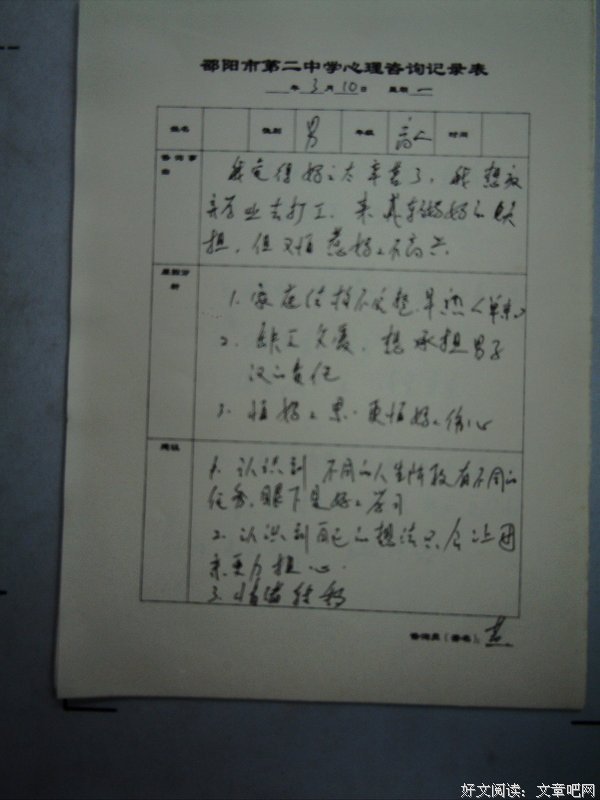 邵阳市第二中学心理咨询记录表
年 3 月 10 日 星期 一
姓名 性别 男 年级 高二 时间
咨询事由
我觉得妈妈太辛苦了，我想放
弃学业去打工，来减轻妈妈的负
担，但又怕惹妈妈不高兴。
原因分析
1. 家庭结构不完整，早熟（单亲）
2. 缺乏父爱，想承担男子
汉的责任
3. 怕妈妈累，更怕妈妈伤心
1. 认识到不同的人生阶段有不同的
任务，眼下是好好学习
2. 认识到自己的想法只会让母
亲更为担心
3. 情绪转移
咨询员（签名）：
好文阅读：文章吧网